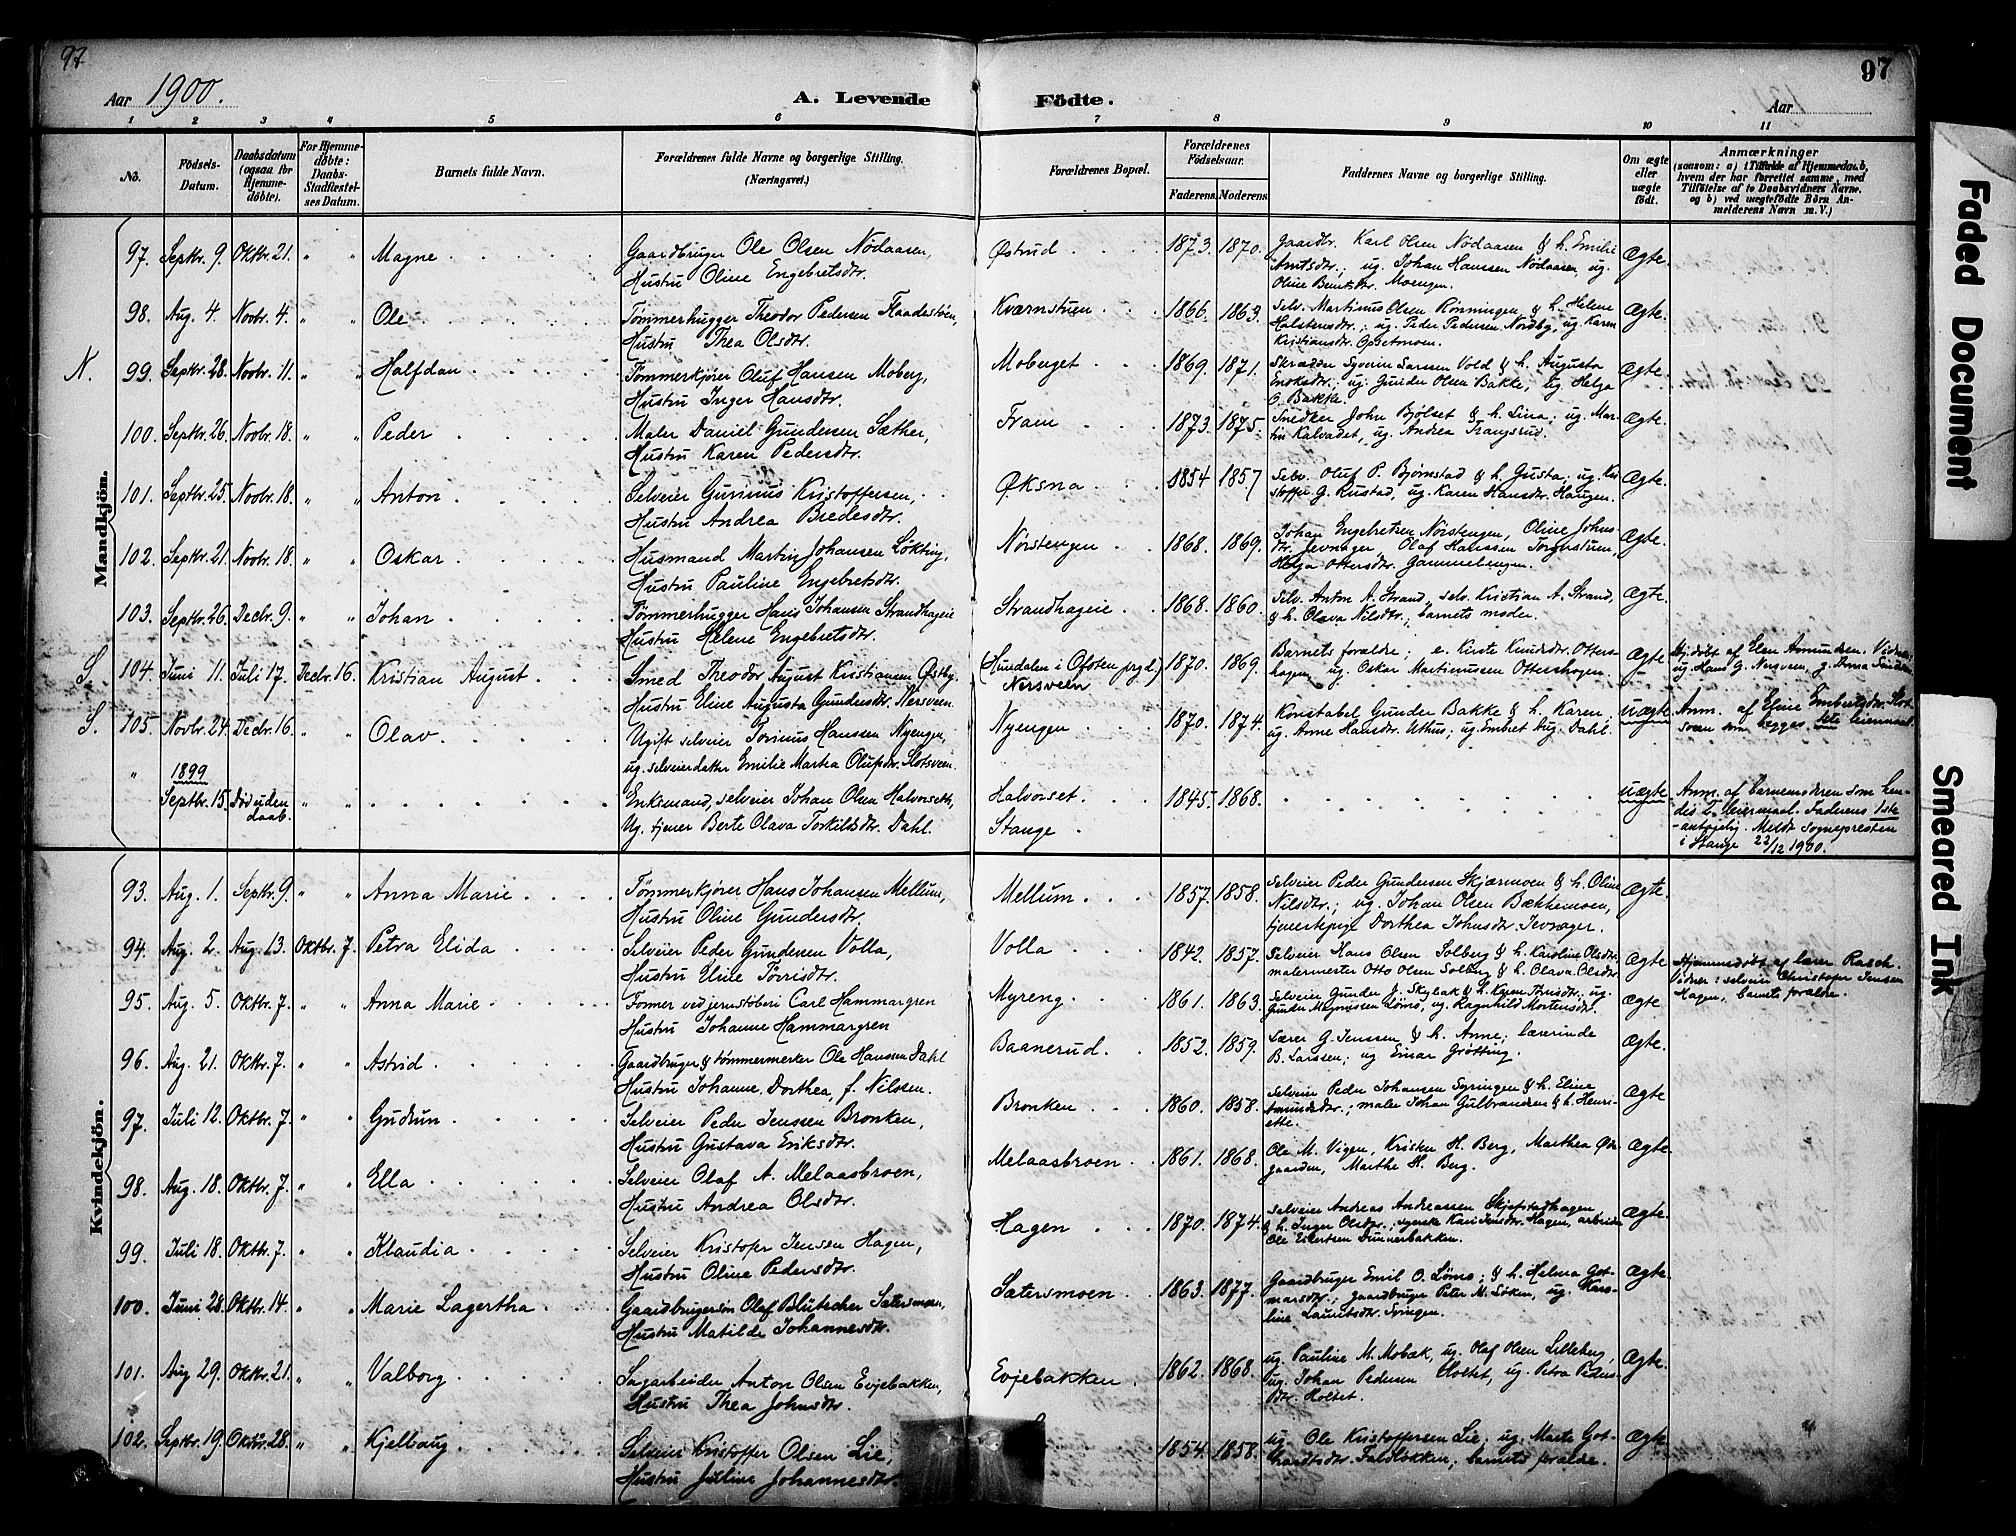 97
97
Aar 1900.
A. Levende Födte.
Aar
1 2 3 4 5 6 7 8 9 10 11
No.
Födsels-Datum.
Daabsdatum (ogsaa for Hjemme-døbte).
For Hjemme-døbte: Daabs-Stadfæstel-ses Datum.
Barnets fulde Navn.
Forældrenes fulde Navne og borgerlige Stilling. (Næringsvei.)
Forældrenes Bopæl.
Forældrenes Födselsaar.
Faderens. Moderens.
Faddernes Navne og borgerlige Stilling.
Om ægte eller uægte født.
Anmærkninger
(saasom: a) i Tilfælde af Hjemmedaab, hvem der har forrettet samme, med Tilföielse af to Daabsvidners Navne, og b) ved uægtefödte Börn An-melderens Navn m. V.)
Mandkjön.
97. Septbr. 9. Oktbr. 21. " " Magne
Gaardbruger Ole Olsen Nödaasen,
Hustru Oline Engebretsdtr.
Østrud 1873. 1870.
Gaardbr. Karl Olsen Nödaasen & h. Emilie
Amtsdtr.; ug. Johan Hanssen Nödaasen, ug.
Oline Berntsdtr. Moengen.
Ægte.
98. Aug. 4. Novbr. 4. " " Ole
Tømmerhugger Theodor Pedersen Flaadestöen,
Hustru Thea Olsdtr.
Kværnstuen 1866. 1863.
Selv. Martinus Olsen Rønningen & h. Helene
Halstensdtr.; ug. Peder Pedersen Nordby, ug. Karen
Kristiansdtr. Opsetmoen.
Ægte.
N. 99. Septbr. 28. Novbr. 11. " " Halfdan
Tømmerkjører Oluf Hansen Moberg,
Hustru Inger Hansdtr.
Moberget 1869. 1871.
Skrædder Syverin Larssen Vold & h. Augusta
Enoksdtr.; ug. Gunder Olsen Bakke, ug. Helga
O. Bakke.
Ægte.
100. Septbr. 26. Novbr. 18. " " Peder
Maler Daniel Gundersen Sæther,
Hustru Karen Pedersdtr.
Fram 1873. 1875.
Snedker John Bjølset & h. Lina; ug. Mar-
tin Kalvadet, ug. Andrea Trangsrud.
Ægte.
101. Septbr. 25. Novbr. 18. " " Anton
Selveier Gunnus Kristoffersen,
Hustru Andrea Bredesdtr.
Øksna 1854 1857
Selv. Oluf P. Bjørnstad & h. Gusta; ug. Kri-
stoffer G. Rustad, ug. Karen Hansdtr. Haugen.
Ægte.
102. Septbr. 21. Novbr. 18. " " Oskar
Husmand Martin Johansen Løkting,
Hustru Pauline Engebretsdtr.
Nørstengen 1868. 1869.
Johan Engebretsen Nørstengen, Oline Johns-
dtr. Jevnager, Olaf Hanssen Torgerstuen,
Helga Ottersdtr. Gammelengen.
Ægte.
103. Septbr. 26. Decbr. 9. " " Johan
Tømmerhugger Hans Johansen Strandhageie
Hustru Helene Engebretsdtr.
Strandhageie 1868. 1860.
Selv. Anton A. Strand, selv. Kristian A. Strand,
& h. Olava Nilsdtr.; barnets moder.
Ægte.
S 104. Juni 11. Juli 17. Decbr. 16. Kristian August
Smed Theodor August Kristiansen Østby
Hustru Eline Augusta Gundersdtr. Nersveen
(Hundalen i Ofoten prgd.) Nersveen 1870. 1869.
Barnets forældre; e. Kirste Knudsdtr. Otters-
hagen, ug. Oskar Martinusen Ottershagen.
Ægte
Hj.døbt af Elen Amundsen. Vidner:
ug. Hans G. Nersveen, g. Anna
S. 105. Novbr. 24. Decbr. 16. " " Olav
Ugift selveier Torinus Hanssen Nyengen,
ug. selveierdatter Emilie Martea Olufsdtr. Slotsveen
Nyengen 1870. 1874.
Konstabel Gunder Bakke & h. Karen,
ug. Anne Hansdtr. Uthus; ug. Embret Aug. Dahl.
uægte
Anm. af Eline Embretsdtr. Slot-
sveen som begges 1ste leiermaal.
" 1899
Septbr. 15. Död uden daab. " "
Enkemand, selveier Johan Olsen Halvorseth,
Ug. tjener Berte Olava Torkildsdtr. Dahl.
Halvorset, Stange 1845. 1868.
uægte
Anm. af barnemoderen som hen-
des 2. leiermaal. Faderens 1ste
Meldt Sognepresten
i Stange 22/12 1900.
Kvindekjön.
93. Aug. 1. Septbr. 9. " " Anna Marie
Tømmerkjører Hans Johansen Mellum,
Hustru Oline Gundersdtr.
Mellum 1857. 1858.
Selveier Peder Gundersen Skjærmoen & h. Oline
Nilsdtr.; ug. Johan Olsen Bækkemoen,
tjenestepige Dorthea Johnsdtr. Jevnager.
Ægte.
94. Aug. 2. Aug. 13. Oktbr. 7. Petra Elida
Selveier Peder Gundersen Volla,
Hustru Eline Tövrisdtr.
Volla 1842. 1857.
Selveier Hans Olsen Solberg & h. Karoline Olsdtr.
malermester Otto Olsen Solberg & h. Olava Olsdtr.
Ægte
Hjemmedøbt af lærer Rasch.
Vidner: selveier Christofer Jensen
Hagen, barnets forældre.
95. Aug. 5. Oktbr. 7. " " Anna Marie
Former ved jernstøberi Carl Hammargren
Hustru Johanne Hammargren
Myreng 1861. 1863.
Selveier Gunder J. Skybak & h. Karen ; ug.
Gunder Magnussen Løms, ug. Ragnhild Mortensdtr.
Ægte.
96. Aug. 21. Oktbr. 7. " " Astrid
Gaardbruger & tømmermerker Ole Hanssen Dahl
Hustru Johanne Dorthea, f. Nilssen.
Baanerud. 1852. 1859.
Lærer G. Jenssen & h. Anne; lærerinde
B. Larssen; ug. Einar Grøtting.
Ægte.
97. Juli 12. Oktbr. 7. " " Gudrun
Selveier Peder Jenssen Bronken,
Hustru Gustava Eriksdtr.
Bronken 1860. 1858.
Selveier Peder Johansen Syringen & h. Eline
Amundsdtr.; maler Johan Gulbrandsen & h. Henri-
ette.
Ægte
98. Aug. 18. Oktbr. 7. " " Ella
Selveier Olaf A. Melaasbroen,
Hustru Andrea Olsdtr.
Melaasbroen 1861. 1868.
Ole M. Vigen, Kristen H. Berg, Marthea Øst-
gaarden, Marthe H. Berg.
Ægte.
99. Juli 18. Oktbr. 7. " " Klaudia
Selveier Kristofer Jensen Hagen,
Hustru Oline Pedersdtr.
Hagen 1870. 1874.
Selveier Andreas Andreassen Skjefstadhagen
& h. Inger Olsdtr.; syerske Kari Jensdtr. Hagen, arbeider
Ole Evertsen Dunnerbakken.
Ægte.
100. Juni 28. Oktbr. 14. " " Marie Lagertha
Gaardbrugersön Olaf Blütecher Sætersmoen,
Hustru Matilde Johannesdtr.
Sætersmoen 1863. 1877.
Gaardbruger Emil O. Löms, & h. Helma Got-
marsdtr.; gaardbruger Peter M. Löken, ug. Karo-
line Lauritsdtr. Syringen.
Ægte.
101. Aug 29. Oktbr. 21. " " Valborg
Sagarbeider Anton Olsen Evjebakken,
Hustru Thea Johnsdtr.
Evjebakken 1862. 1868.
ug. Pauline M. Mobæk, ug. Olaf Olsen Lilleberg,
ug. Johan Pedersen Holtet, ug. Petra Peders-
dtr. Holtet.
Ægte.
102. Septbr. 19. Oktbr. 28. " " Kjellaug
Selveier Kristoffer Olsen Lie,
Hustru Juline Johannesdtr.
1854. 1858.
ug. Ole Kristoffersen Lie, ug. Marte Got-
hardtsdtr. Faldlökken; barnets forældre.
Ægte.
Faded Document
Smeared Ink